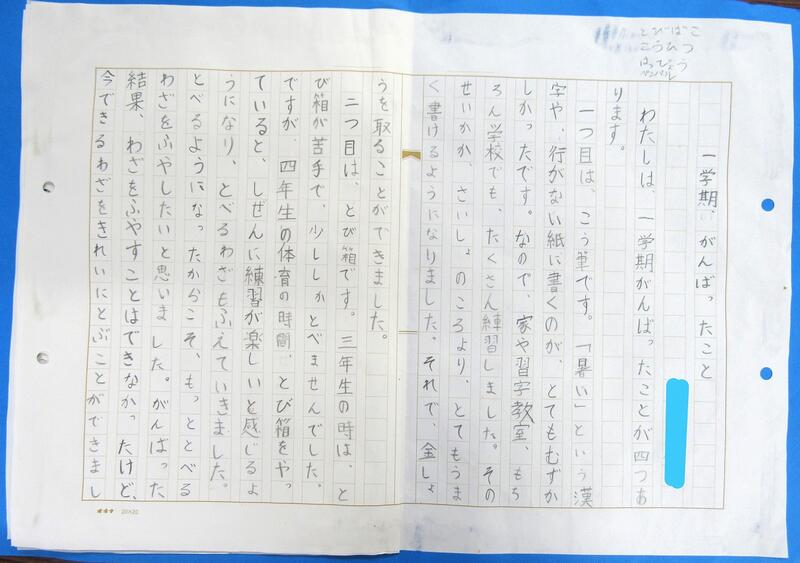 とびばこ
こうひつ
はっぴょう
一学期、がんばったこと
わたしは、一学期がんばったことが四つあ
ります。
一つ目は、こう筆です。「暑い」という漢
字や、行がない紙に書くのが、とてもむずか
しかったです。なので、家や習字教室、もち
ろん学校でも、たくさん練習しました。その
せいかか、さいしょのころより、とてもうま
く書けるようになりました。それで、金しょ
うを取ることができました。
二つ目は、とび箱です。三年生の時は、と
び箱が苦手で、少ししかとべませんでした。
ですが、四年生の体育の時間、とび箱をやっ
ていると、しぜんに練習が楽しいと感じるよ
うになり、とべるわざもふえていきました。
とべるようになったからこそ、もっととべる
わざをふやしたいと思いました。がんばった
結果、わざをふやすことはできなかったけど、
今できるわざをきれいにとぶことができまし
20×20